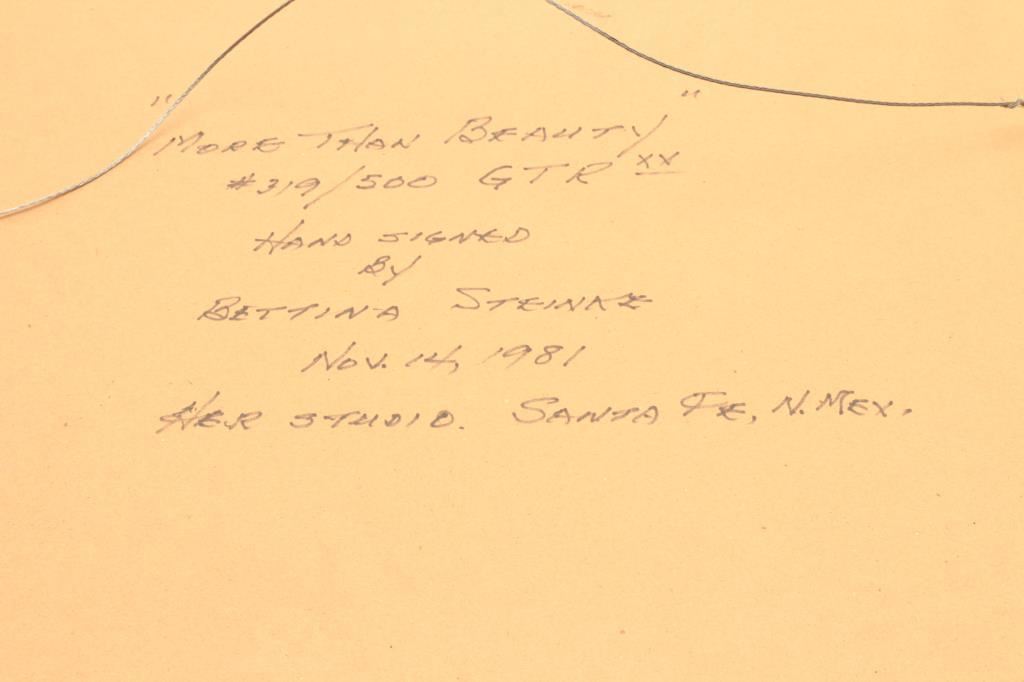 "More Than Beauty"
#319/500 GTR XX
Hand signed
By
Bettina Steinke
Nov. 14, 1981
Her studio. Santa Fe, N. Mex.